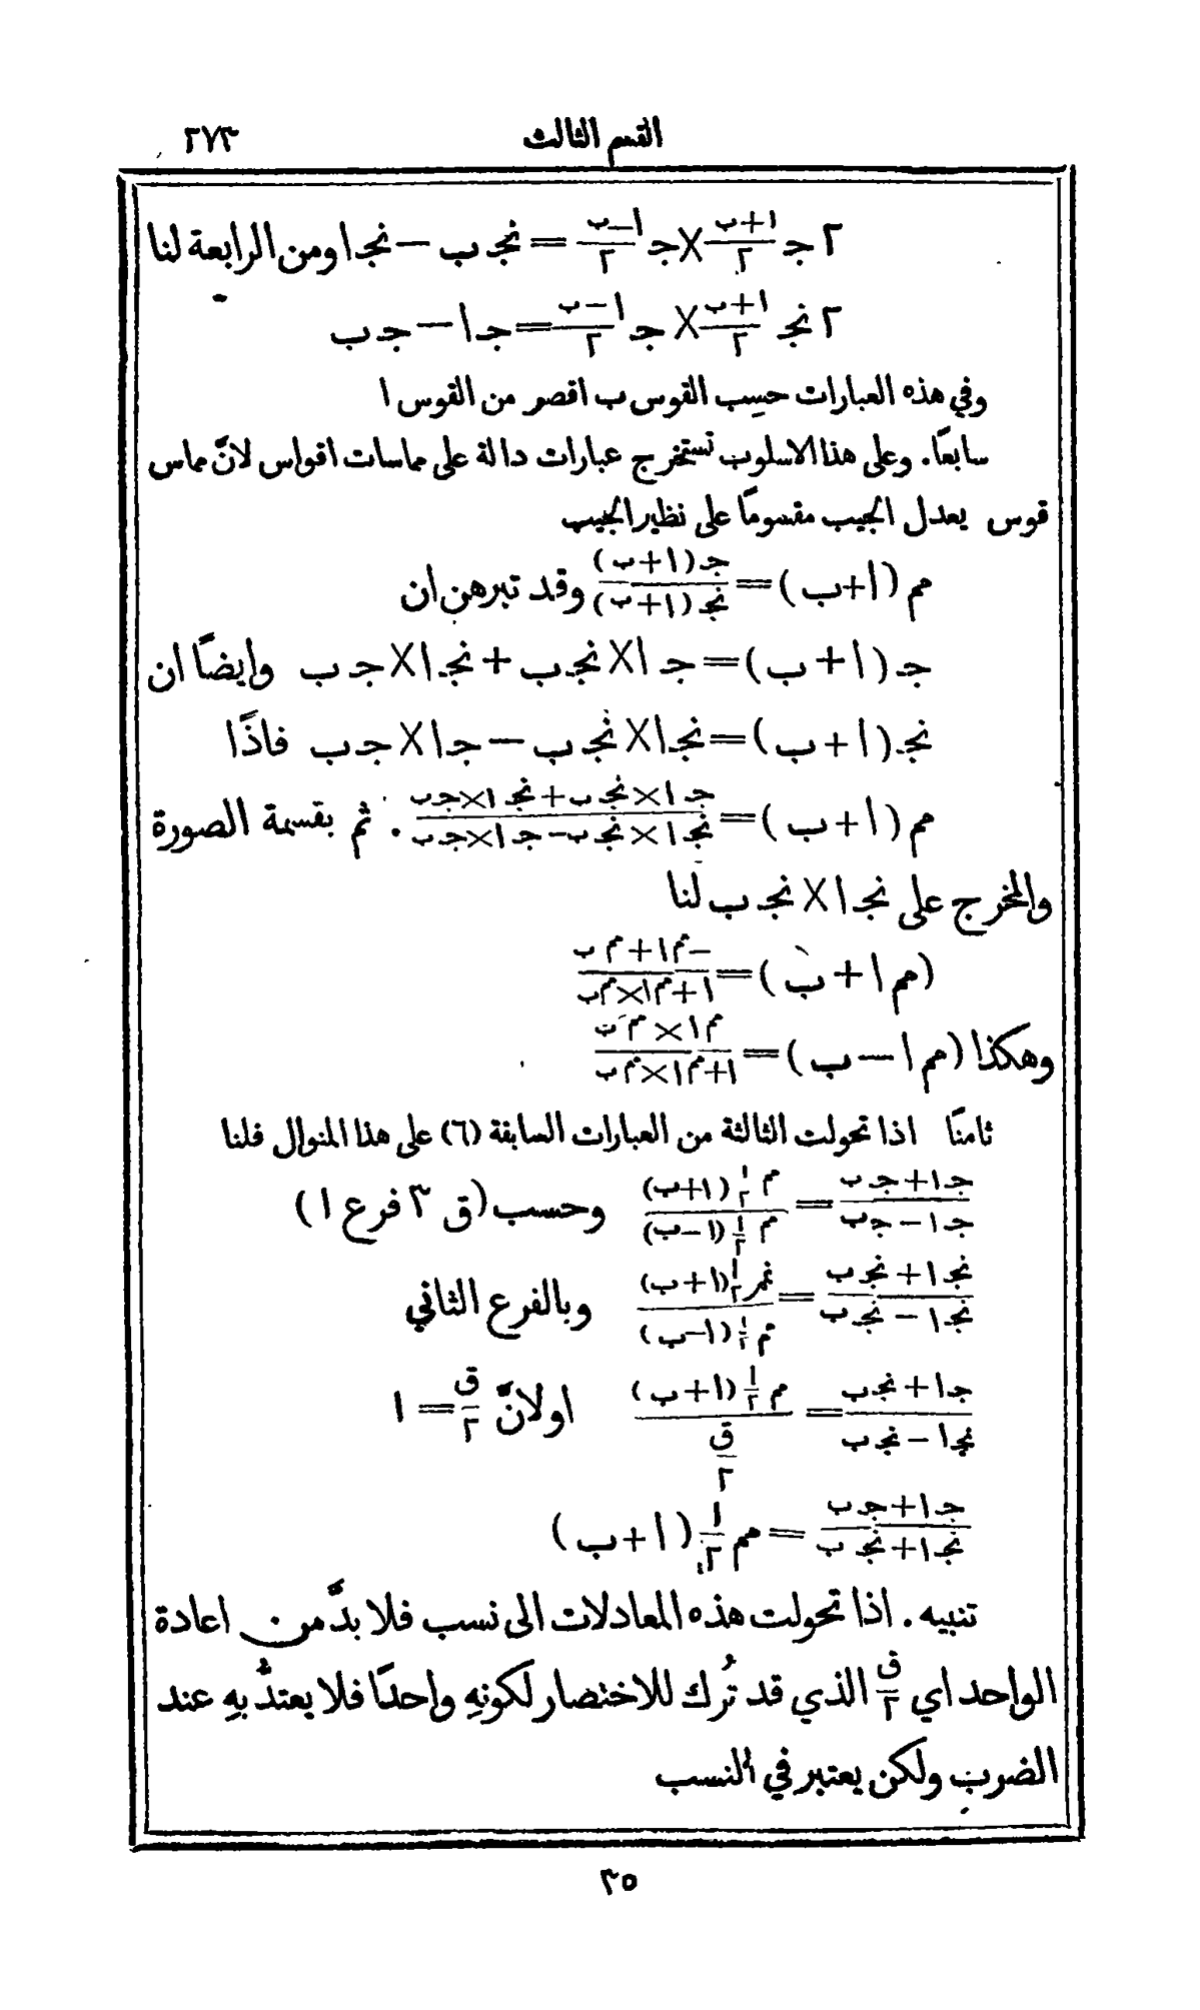 القسم الثالث ٢٧٣
٢ جـ (ا+ب)/٢ × جـ (ا−ب)/٢ = نجـ ب − نجـ ا ومن الرابعة لنا
٢ نجـ (ا+ب)/٢ × جـ (ا−ب)/٢ = جـ ا − جـ ب
وفي هذه العبارات حسِب القوس ب اقصر من القوس ا
سابعًا. وعلى هذا الاسلوب تستخرج عبارات دالة على مماسات اقواس لانَّ مماس
قوس يعدل الجيب مقسومًا على نظير الجيب
م (ا+ب) = جـ (ا+ب)/نجـ (ا+ب) وقد تبرهن ان
جـ (ا+ب) = جـ ا × نجـ ب + نجـ ا × جـ ب وايضًا ان
نجـ (ا+ب) = نجـ ا × نجـ ب − جـ ا × جـ ب فاذًا
م (ا+ب) = (جـ ا × نجـ ب + نجـ ا × جـ ب)/(نجـ ا × نجـ ب − جـ ا × جـ ب). ثم بقسمة الصورة
والمخرج على نجـ ا × نجـ ب لنا
(م ا+ب) = (−م ا + م ب)/(ا + م ا × م ب)
وهكذا (م ا − ب) = (م ا × م ب)/(ا + م ا × م ب)
ثامنًا اذا تحولت الثالثة من العبارات السابقة (٦) على هذا المنوال فلنا
(جـ ا + جـ ب)/(جـ ا − جـ ب) = م ١/٢ (ا+ب)/م ١/٢ (ا−ب) وحسب (ق ٣ فرع ١)
(نجـ ا + نجـ ب)/(نجـ ا − نجـ ب) = نمر ١/٢ (ا+ب)/م ١/٢ (ا−ب) وبالفرع الثاني
(جـ ا + نجـ ب)/(نجـ ا − نجـ ب) = م ١/٢ (ا+ب)/(ق/٢) اولانَّ ق/٢ = ١
(جـ ا + جـ ب)/(نجـ ا + نجـ ب) = م ١/٢ (ا+ب)
تنبيه. اذا تحولت هذه المعادلات الى نسب فلا بدَّ من اعادة
الواحد اي ق/٢ الذي قد تُرك للاختصار لكونهِ واحدًا فلا يعتدُّ بهِ عند
الضرب ولكن يعتبر في النسب
٣٥